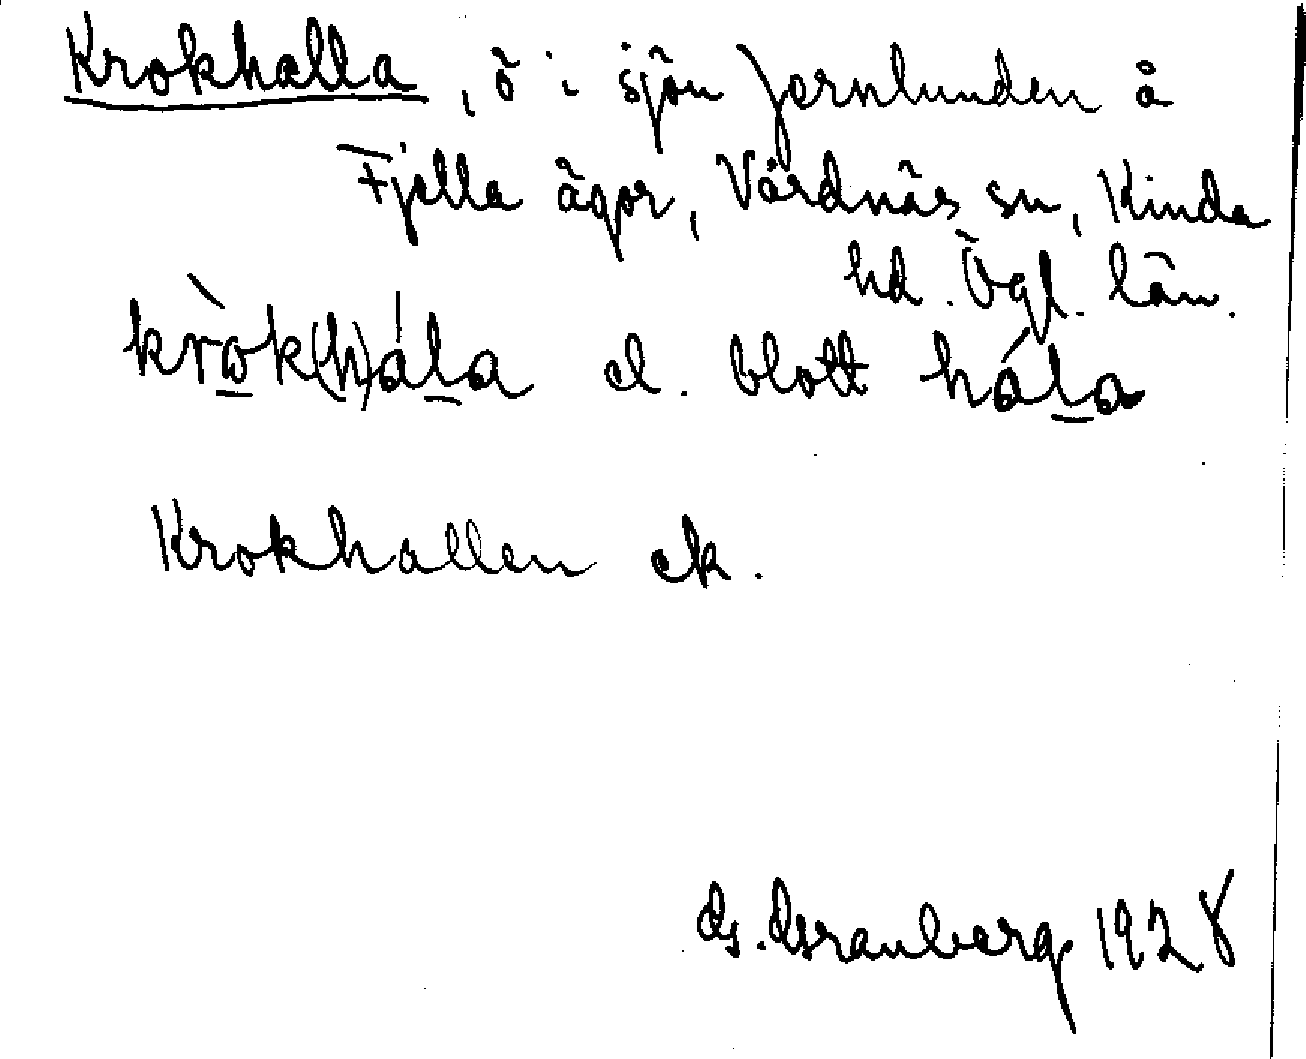 Krokhalla, ö i sjön Jernlunden å
Fjella ägor, Vårdnäs sn, Kinda
hd. Ögl. län.
kròk(h)ála el. blott hála
Krokhallen ek.
G. Granberg 1928